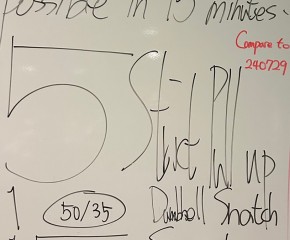 possible in 15 minutes.
Compare to
240729
5 Strict Pull up
1 50/35 Dumbbell Snatch